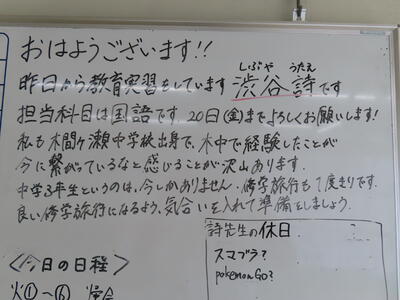 おはようございます!!
しぶや うたえ
昨日から教育実習をしています 渋谷詩です
担当科目は国語です。20日(金)までよろしくお願いします!
私も木間ヶ瀬中学校出身で、木中で経験したことが
今に繋がっているなと感じることが沢山あります。
中学3年生というのは、今しかありません。修学旅行も1度きりです。
良い修学旅行になるよう、気合いを入れて準備をしましょう。
詩先生の休日
スマブラ?
pokemon GO?
<今日の日程>
火①~⑥